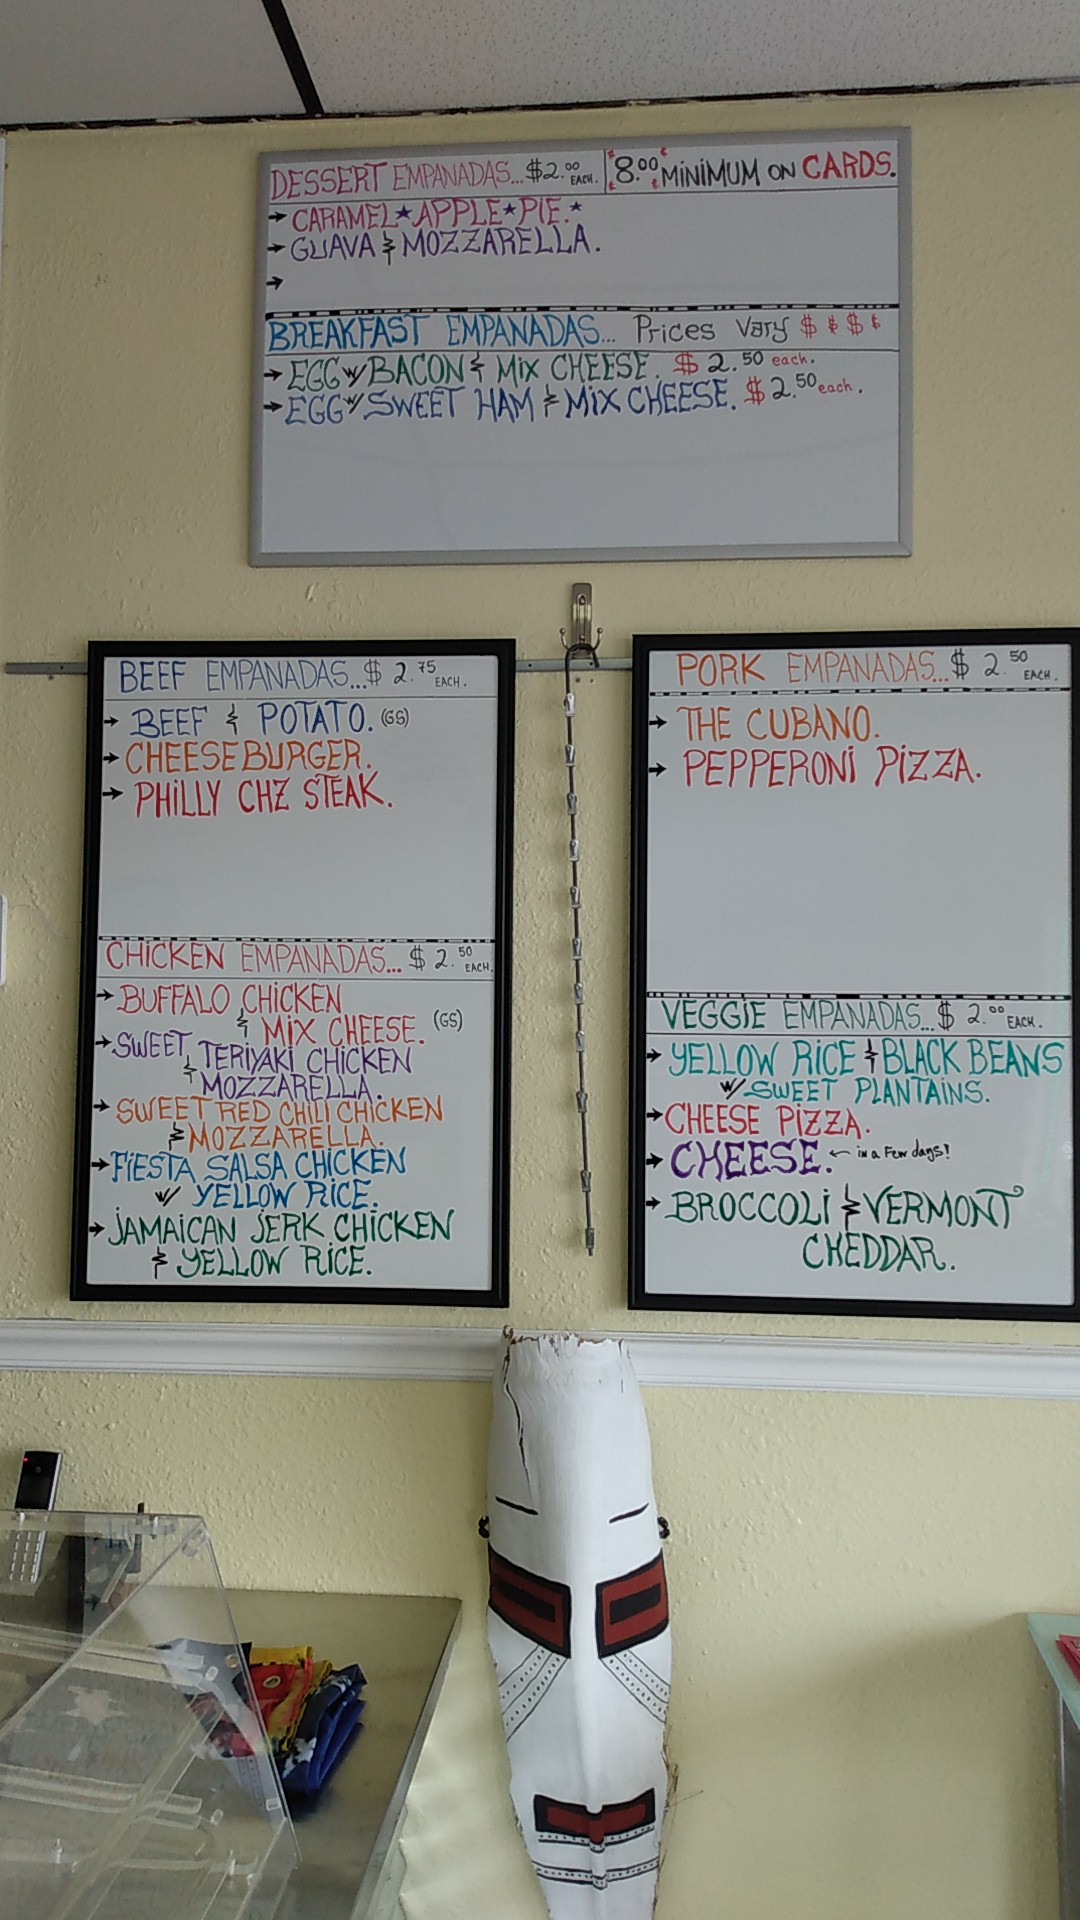 DESSERT EMPANADAS... $2.00 EACH. $8.00 MINIMUM ON CARDS.
→ CARAMEL★APPLE★PIE.★
→ GUAVA & MOZZARELLA.
→
BREAKFAST EMPANADAS... Prices Vary $ $ $ $
→ EGG w/ BACON & MIX CHEESE. $2.50 each.
→ EGG w/ SWEET HAM & MIX CHEESE. $2.50 each.
BEEF EMPANADAS...$ 2.75 EACH.
→ BEEF & POTATO. (GS)
→ CHEESEBURGER.
→ PHILLY CHZ STEAK.
CHICKEN EMPANADAS... $ 2.50 EACH.
→ BUFFALO CHICKEN
& MIX CHEESE. (GS)
→ SWEET TERIYAKI CHICKEN
& MOZZARELLA.
→ SWEET RED CHILI CHICKEN
& MOZZARELLA.
→ FIESTA SALSA CHICKEN
w/ YELLOW RICE.
→ JAMAICAN JERK CHICKEN
& YELLOW RICE.
PORK EMPANADAS...$ 2.50 EACH.
→ THE CUBANO.
→ PEPPERONI PIZZA.
VEGGIE EMPANADAS...$ 2.00 EACH.
→ YELLOW RICE & BLACK BEANS
w/ SWEET PLANTAINS.
→ CHEESE PIZZA.
→ CHEESE. ← in a Few days!
→ BROCCOLI & VERMONT
CHEDDAR.